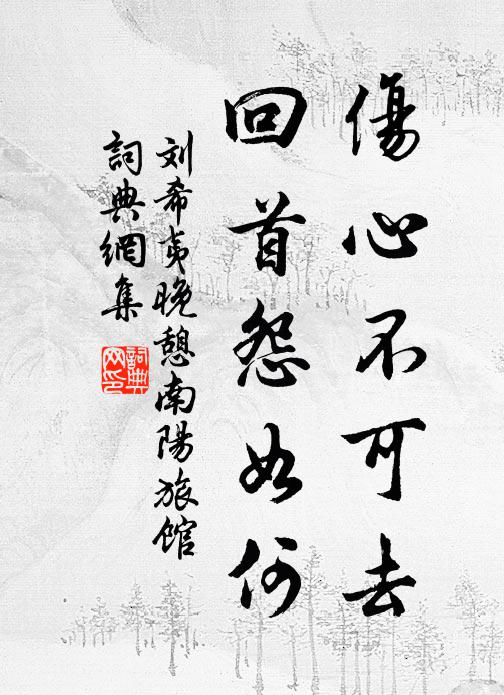 傷心不可去
回首怨如何
刘希夷晚憩南陽旅館
詞典網集
詞典
网印